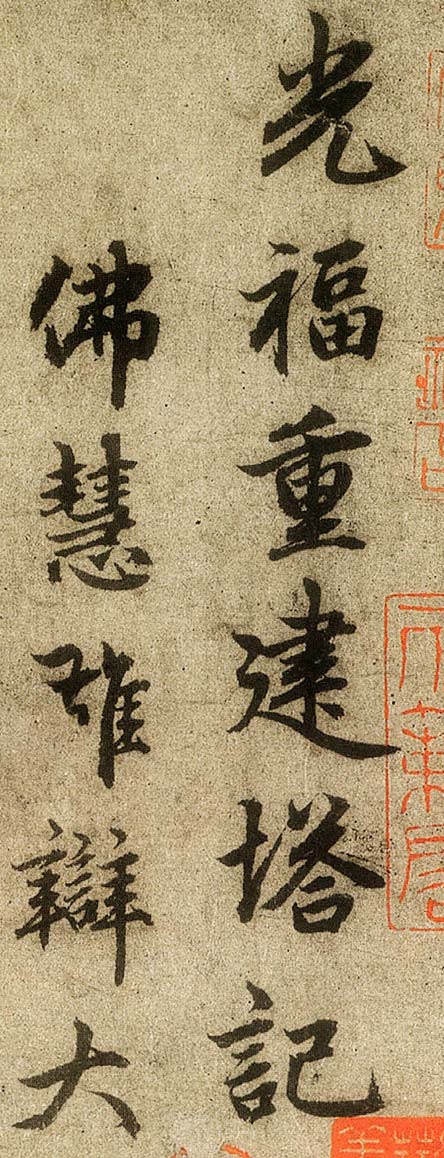 光福重建塔記
佛慧雄辯大